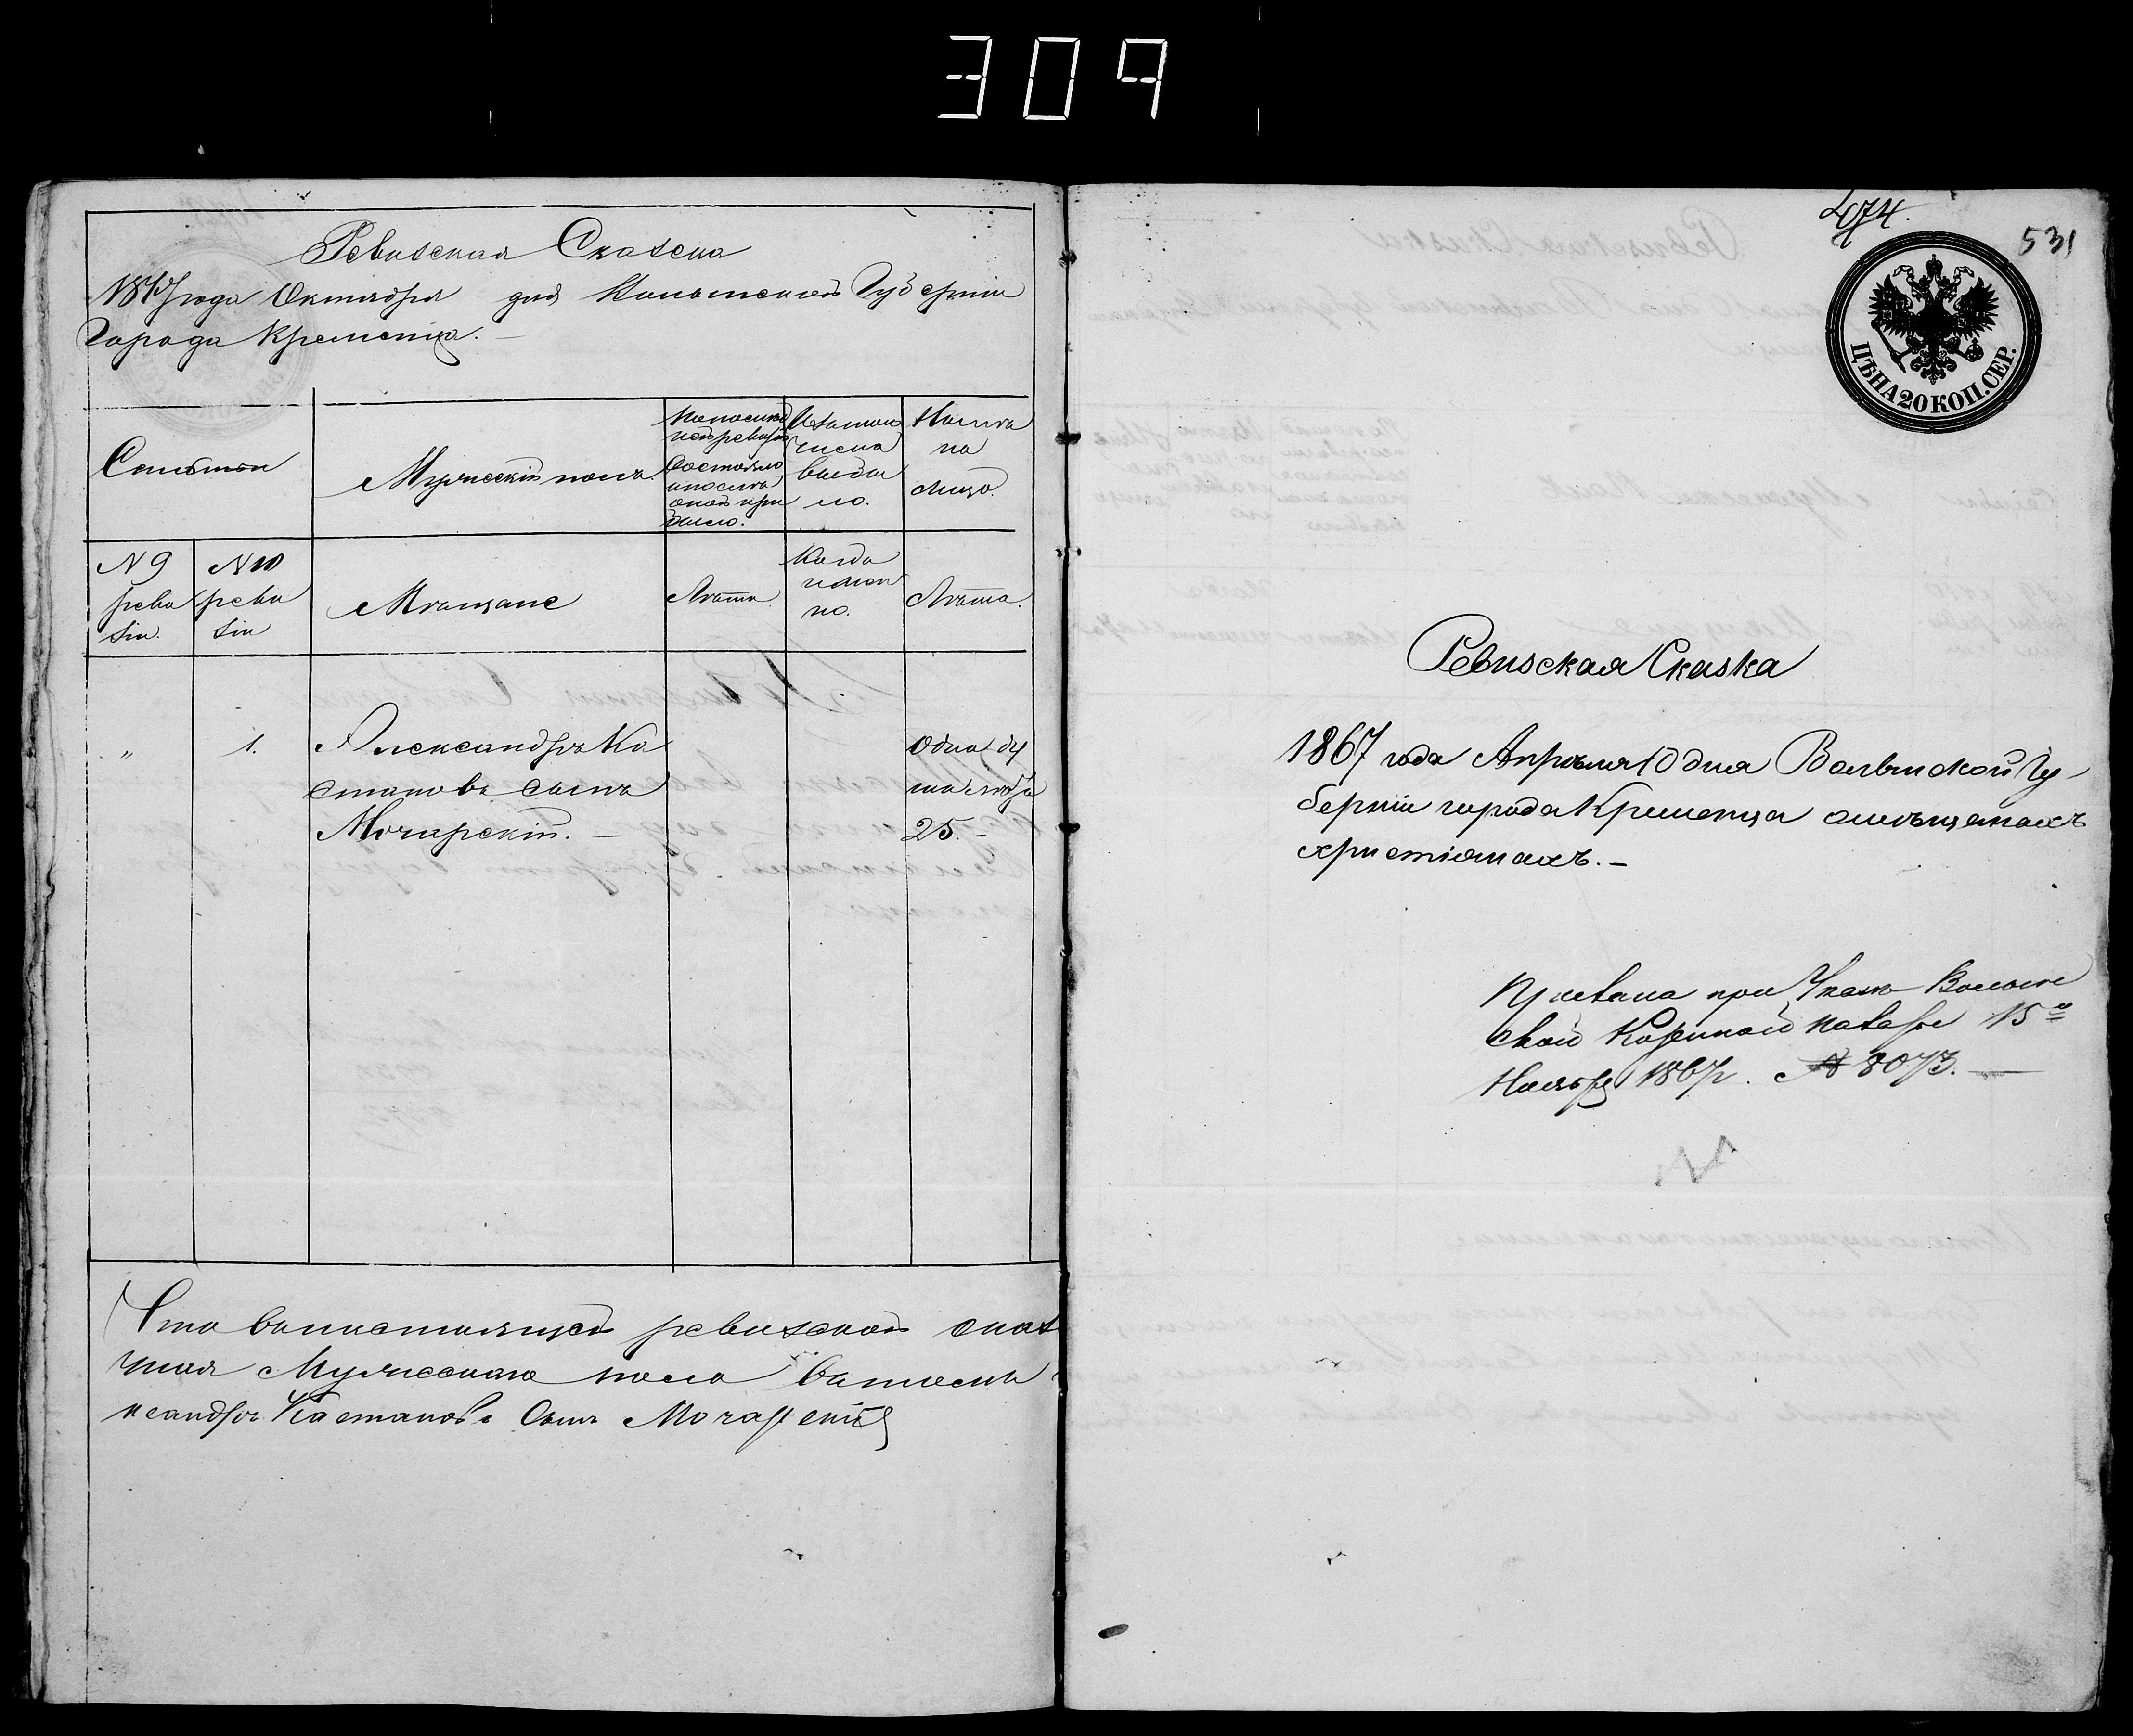 309
Ревизская Сказка
1867 года Октября дня Волынской Губерніи
Города Кременца.
Семьи
Мужескій полъ.
По послѣд
ней ревизіи
состояло
и послѣ
оной при
было.
Изъ того
числа
выбы
ло.
Нынѣ
на
лицо.
N 9
реви
зіи.
N 10
реви
зіи
Мѣщане
Лѣта.
Когда
имян
но.
Лѣта.
„
1.
Александръ Ка
етановъ сынъ
Мочарскій. —
Одна ду
ша
25. —
Что в настоящей ревизской сказ
Мужескаго пола
ксандръ Каетановъ Сынъ Мочарскій
474.
531
ЦѢНА 20 КОП. СЕР.
Ревизская Сказка
1867 года Апрѣля 10 дня Волынской Гу-
берніи города Кременца о мѣщанахъ
христіянахъ. —
при Указѣ Волын
ской Казенной Палаты 15го
Ноября 1867 г. № 8073. —